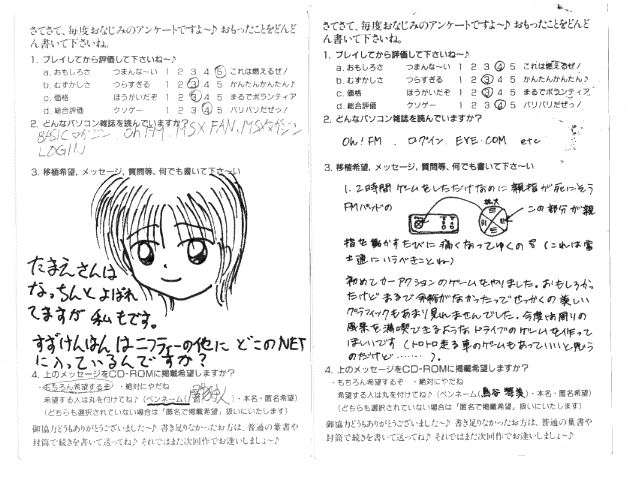 さてさて、毎度おなじみのアンケートですよ～♪ おもったことをどんど
ん書いて下さいね。
1. プレイしてから評価して下さいね～♪
a. おもしろさ つまんな～い 1 2 3 4 5 これは燃えるぜ！
b. むずかしさ つらすぎる 1 2 3 4 5 かんたんかんたん♪
c. 価格 ほうがいだぞ 1 2 3 4 5 まるでボランティア
d. 総合評価 クソゲー 1 2 3 4 5 バリバリだぜっ！
2. どんなパソコン雑誌を読んでいますか？
BASICマガジン Oh!FM, MSX FAN, MSXマガジン
LOGIN
3. 移植希望、メッセージ、質問等、何でも書いて下さ～い
たまえさんは
なっちんとよばれ
てますが 私もです。
すずけんはんはニフティーの他に どこのNET
に入っているんですか？
4. 上のメッセージをCD-ROMに掲載希望しますか？
・もちろん希望するぞ ・絶対にやだね
希望する人は丸を付けてね♪（ペンネーム（
）・本名・匿名希望）
（どちらも選択されていない場合は「匿名で掲載希望」扱いにいたします）
御協力どうもありがとうございました～♪ 書き足りなかったお方は、普通の葉書や
封筒で続きを書いて送ってね♪ それではまた次回作でお逢いしましょ～♪
さてさて、毎度おなじみのアンケートですよ～♪ おもったことをどんど
ん書いて下さいね。
1. プレイしてから評価して下さいね～♪
a. おもしろさ つまんな～い 1 2 3 4 5 これは燃えるぜ！
b. むずかしさ つらすぎる 1 2 3 4 5 かんたんかんたん♪
c. 価格 ほうがいだぞ 1 2 3 4 5 まるでボランティア
d. 総合評価 クソゲー 1 2 3 4 5 バリバリだぜっ！
2. どんなパソコン雑誌を読んでいますか？
Oh! FM . ログイン EYE・COM etc
3. 移植希望、メッセージ、質問等、何でも書いて下さ～い
1. 2時間ゲームをしただけなのに親指が死にそう
FMパッドの
この部分が親
指を動かすたびに痛くなってゆくの（これは富
士通にいうべきことね）
初めてカーアクションのゲームをやりました。おもしろかっ
たけどまるで余裕がなかったでせっかくの美しい
グラフィックもあまり見れませんでした。今度は周りの
風景を満喫できるようなドライブのゲームを作って
ほしいです（トロトロ走る車のゲームもあっていいと思う
のだけど……）。
4. 上のメッセージをCD-ROMに掲載希望しますか？
・もちろん希望するぞ ・絶対にやだね
希望する人は丸を付けてね♪（ペンネーム（
）・本名・匿名希望）
（どちらも選択されていない場合は「匿名で掲載希望」扱いにいたします）
御協力どうもありがとうございました～♪ 書き足りなかったお方は、普通の葉書や
封筒で続きを書いて送ってね♪ それではまた次回作でお逢いしましょ～♪